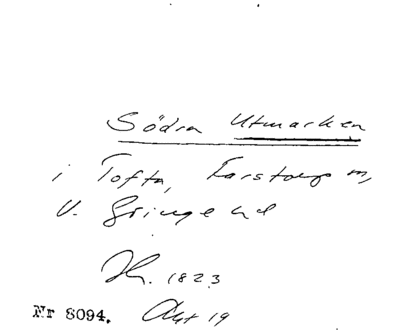 Södra Utmarken
i Tofta, Farstorps sn,
V. Göinge hd
Hr. 1823
Nr 8094. Akt 19